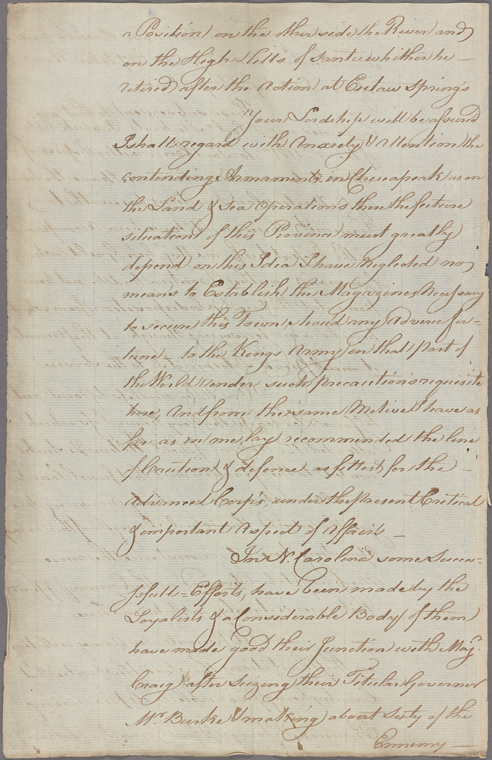 a Position on the other side the River and
on the High Hills of Santee whither he
retired after the Action at Eutaw Springs
Your Lordship will be assured
I shall regard with Anxiety & Attention the
contending Armaments in Cheseapeak as on
the Land & Sea Operations there the future
situation of this Province must greatly
depend on this Idea I have Neglected no
means to Establish the Magazines Necessary
to secure this Town should any Adverse for-
tune to the Kings Army in that part of
the World render such precautions requisite
here, And from the same Motive I have as
far as in me lay recommended the line
of Caution & defence as fittest for the
Advanced Corps under the present Critical
& important Aspect of Affairs -
In N. Carolina some Succe-
ssfull Efforts, have been made by the
Loyalists & a Considerable Body of them
have made good their Junction with Majr.
Craig after Seizing their Titular Governor
Mr. Burke & making about Sixty of the
Ennemy